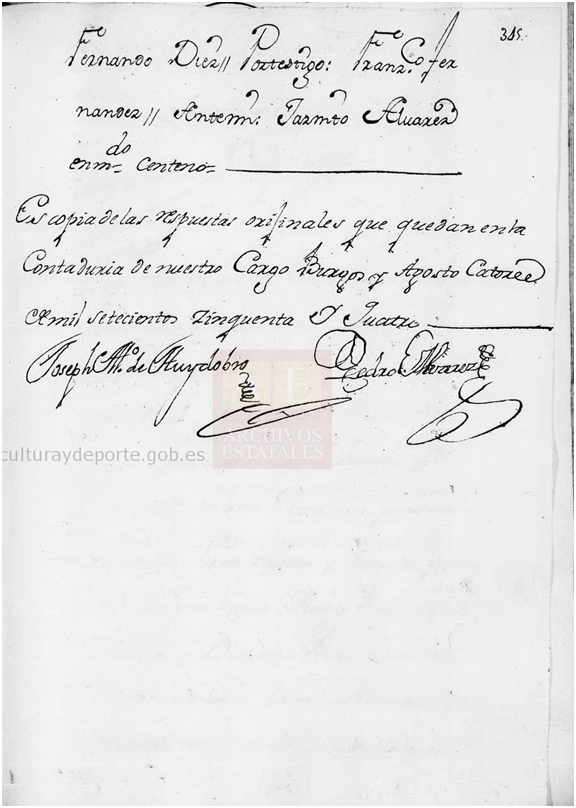 345.
Fernando Diez // Portestigo: Franz.co fer
nandez // Antemi: Jazinto Alvarez
enm.do Centeno=
Es copia de las respuestas orijinales que quedan en la
Contaduria de nuestro Cargo Burgos y Agosto Catorce
de mil setecientos zinquenta y quatro
Joseph Ant.o de Huydobro Pedro Alvarez
ARCHIVOS
ESTATALES
culturaydeporte.gob.es